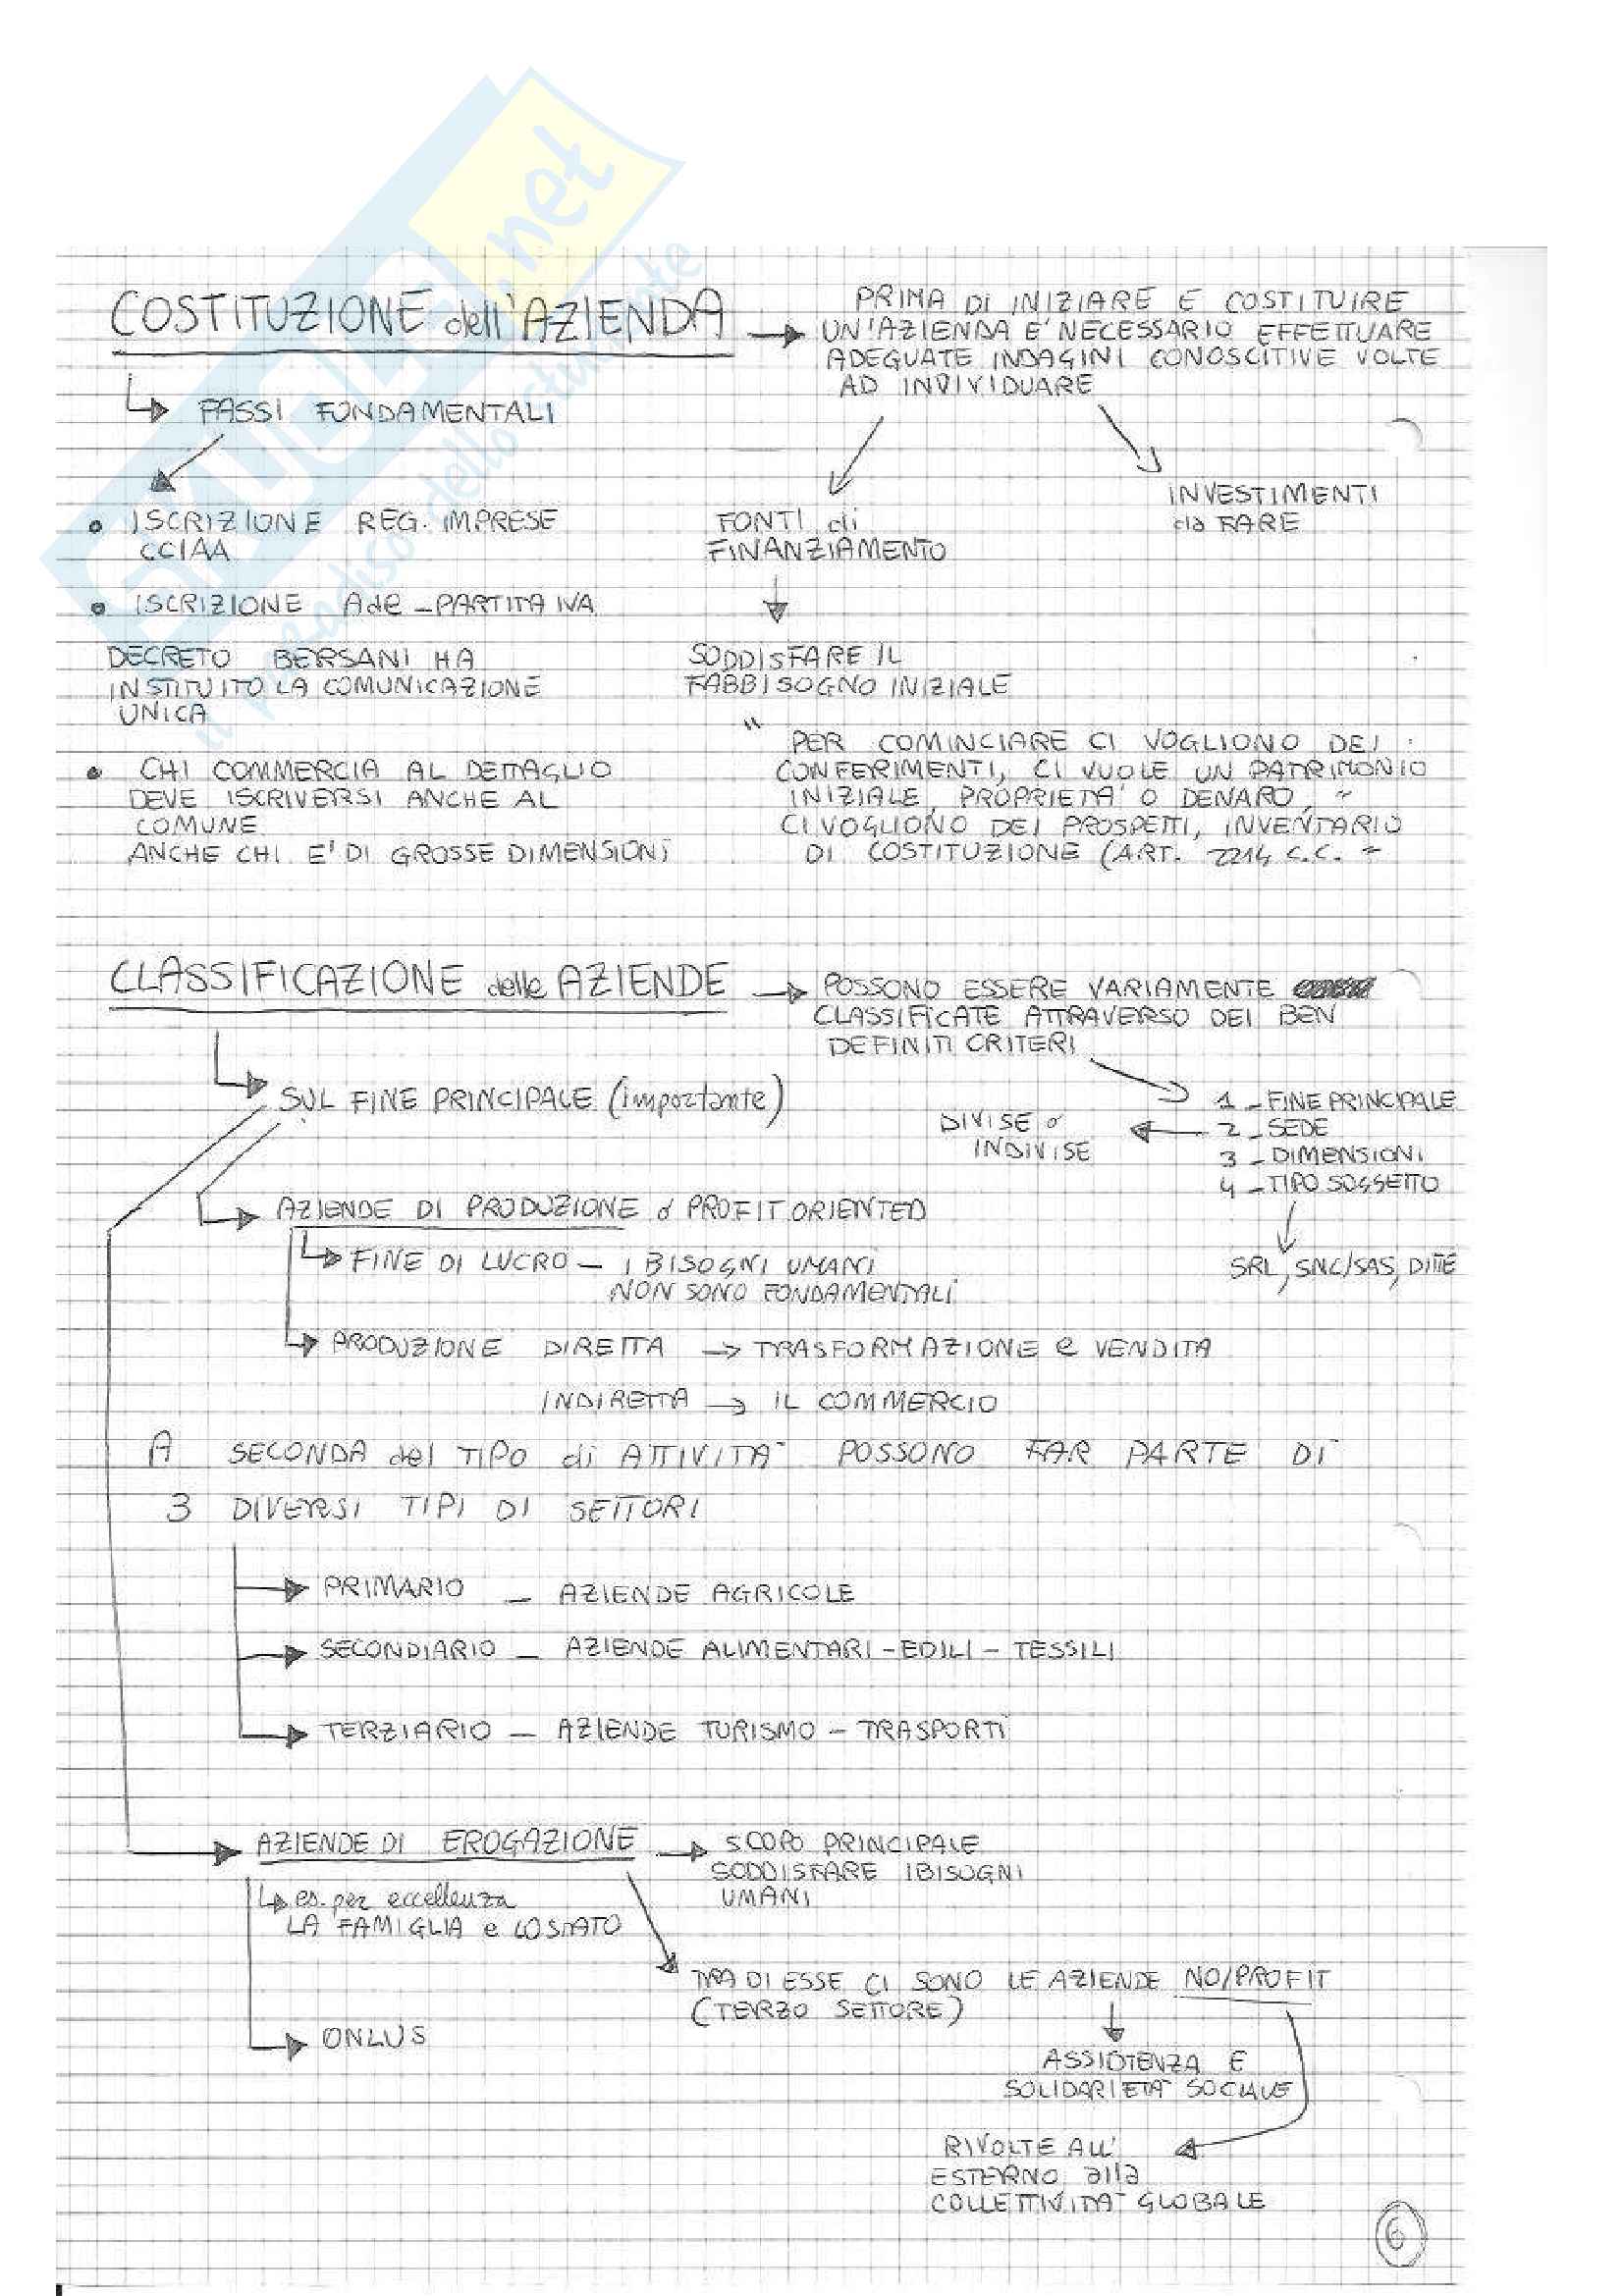 SKUOLA.net
il paradiso dello studente
COSTITUZIONE dell'AZIENDA
PRIMA Di INIZIARE E COSTITUIRE
UN'AZIENDA E' NECESSARIO EFFETTUARE
ADEGUATE INDAGINI CONOSCITIVE VOLTE
AD INDIVIDUARE
PASSI FONDAMENTALI
• ISCRIZIONE REG. IMPRESE
CCIAA
• ISCRIZIONE AdE - PARTITA IVA
DECRETO BERSANI HA
INSTITUITO LA COMUNICAZIONE
UNICA
• CHI COMMERCIA AL DETTAGLIO
DEVE ISCRIVERSI ANCHE AL
COMUNE
ANCHE CHI E' DI GROSSE DIMENSIONI
FONTI di
FINANZIAMENTO
INVESTIMENTI
da FARE
SODDISFARE IL
FABBISOGNO INIZIALE
" PER COMINCIARE CI VOGLIONO DEI
CONFERIMENTI, CI VUOLE UN PATRIMONIO
INIZIALE, PROPRIETA' O DENARO, "
CI VOGLIONO DEI PROSPETTI, INVENTARIO
DI COSTITUZIONE (ART. 2214 C.C. "
CLASSIFICAZIONE delle AZIENDE
POSSONO ESSERE VARIAMENTE
CLASSIFICATE ATTRAVERSO DEI BEN
DEFINITI CRITERI
SUL FINE PRINCIPALE (importante)
1 - FINE PRINCIPALE
2 - SEDE
3 - DIMENSIONI
4 - TIPO SOGGETTO
DIVISE o
INDIVISE
SRL, SNC/SAS, DITTE
AZIENDE DI PRODUZIONE o PROFIT ORIENTED
FINE DI LUCRO - I BISOGNI UMANI
NON SONO FONDAMENTALI
PRODUZIONE DIRETTA → TRASFORMAZIONE e VENDITA
INDIRETTA → IL COMMERCIO
A SECONDA del TIPO di ATTIVITA' POSSONO FAR PARTE DI
3 DIVERSI TIPI DI SETTORI
PRIMARIO - AZIENDE AGRICOLE
SECONDIARIO - AZIENDE ALIMENTARI - EDILI - TESSILI
TERZIARIO - AZIENDE TURISMO - TRASPORTI
AZIENDE DI EROGAZIONE → SCOPO PRINCIPALE
SODDISFARE I BISOGNI
UMANI
es. per eccellenza
LA FAMIGLIA e LO STATO
TRA DI ESSE CI SONO LE AZIENDE NO/PROFIT
(TERZO SETTORE)
ONLUS
ASSISTENZA E
SOLIDARIETA' SOCIALE
RIVOLTE ALL'
ESTERNO alla
COLLETTIVITA' GLOBALE
6